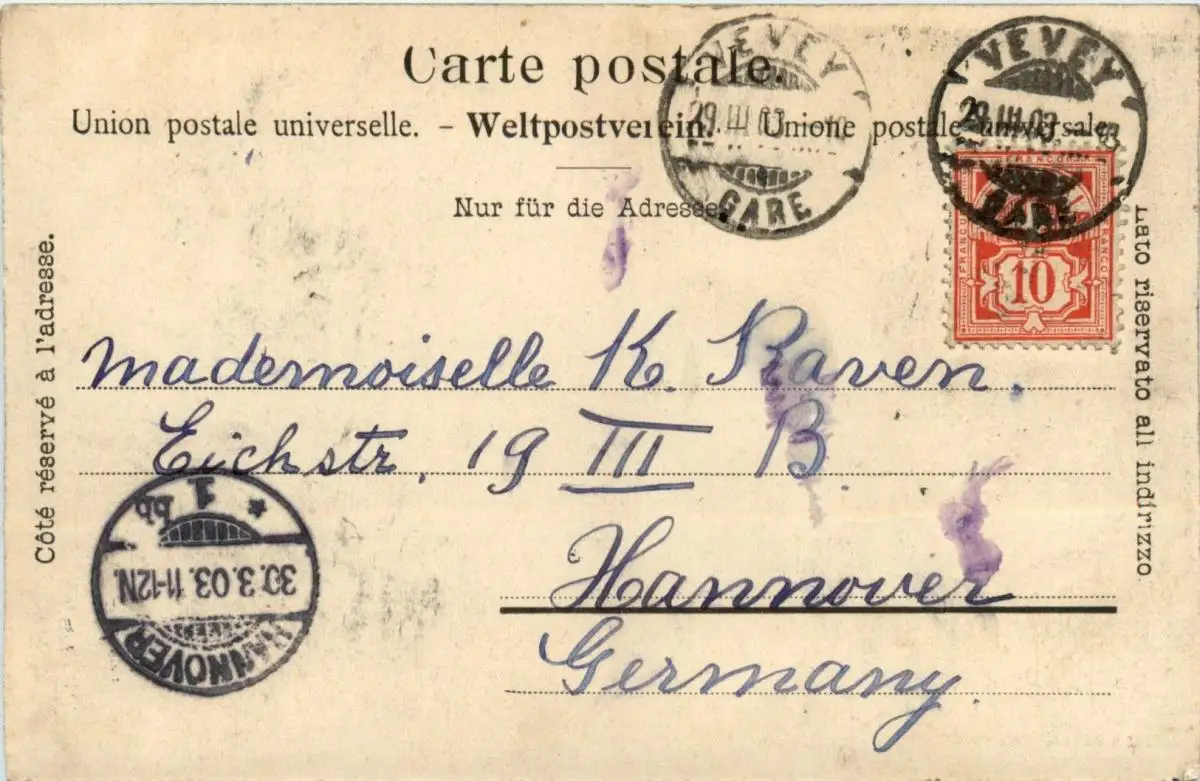 Carte postale.
Union postale universelle. – Weltpostverein. – Unione postale universale.
Nur für die Adresse.
Côté réservé à l'adresse.
Lato riservato all indirizzo
VEVEY
29.III.03
GARE
VEVEY
29.III.03
GARE
FRANCO
FRANCO
FRANCO
10
Mademoiselle K. Raven.
Eichstr. 19 III B
Hannover
Germany.
HANNOVER
30.3.03.11-12N.
* 1 bb